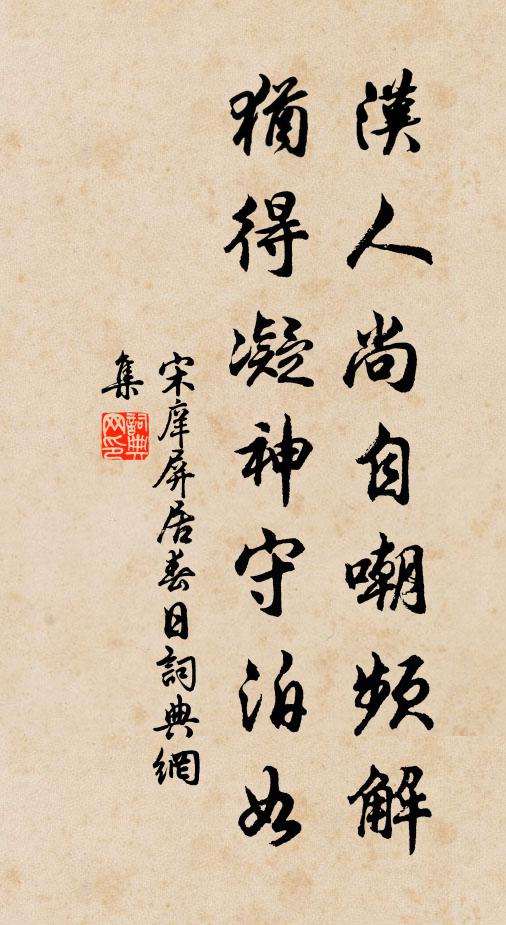 漢人尚自嘲頻解
猶得凝神守泊如
宋庠屏居春日詞典網
集
詞典
网印